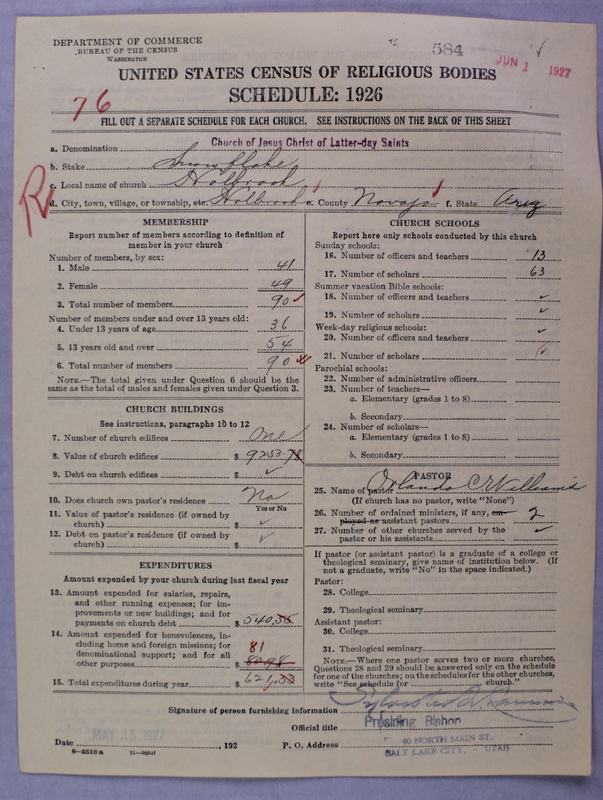 DEPARTMENT OF COMMERCE
BUREAU OF THE CENSUS
WASHINGTON
584
JUN 1 1927
UNITED STATES CENSUS OF RELIGIOUS BODIES
76
SCHEDULE: 1926
FILL OUT A SEPARATE SCHEDULE FOR EACH CHURCH. SEE INSTRUCTIONS ON THE BACK OF THIS SHEET
a. Denomination Church of Jesus Christ of Latter-day Saints
b. Stake Snowflake
c. Local name of church Holbrook
R
d. City, town, village, or township, etc. Holbrook e. County Navajo f. State Ariz
MEMBERSHIP
Report number of members according to definition of
member in your church
Number of members, by sex:
1. Male 41
2. Female 49
3. Total number of members 90
Number of members under and over 13 years old:
4. Under 13 years of age 36
5. 13 years old and over 54
6. Total number of members 90
NOTE.—The total given under Question 6 should be the
same as the total of males and females given under Question 3.
CHURCH BUILDINGS
See instructions, paragraphs 10 to 12
7. Number of church edifices one
8. Value of church edifices $ 9253.78
9. Debt on church edifices $ ✓
10. Does church own pastor's residence No
Yes or No
11. Value of pastor's residence (if owned by
church) $ ✓
12. Debt on pastor's residence (if owned by
church) $ ✓
EXPENDITURES
Amount expended by your church during last fiscal year
13. Amount expended for salaries, repairs,
and other running expenses; for im-
provements or new buildings; and for
payments on church debt $ 540.35
14. Amount expended for benevolences, in-
cluding home and foreign missions; for 81
denominational support; and for all
other purposes $ 80.98
15. Total expenditures during year $ 621.33
CHURCH SCHOOLS
Report here only schools conducted by this church
Sunday schools:
16. Number of officers and teachers 13
17. Number of scholars 63
Summer vacation Bible schools:
18. Number of officers and teachers ✓
19. Number of scholars ✓
Week-day religious schools:
20. Number of officers and teachers ✓
21. Number of scholars
Parochial schools:
22. Number of administrative officers
23. Number of teachers—
a. Elementary (grades 1 to 8)
b. Secondary
24. Number of scholars—
a. Elementary (grades 1 to 8)
b. Secondary
PASTOR
25. Name of pastor Orlando C Williams
(If church has no pastor, write "None")
26. Number of ordained ministers, if any, em-
ployed as assistant pastors 2
27. Number of other churches served by the
pastor or his assistants ✓
If pastor (or assistant pastor) is a graduate of a college or
theological seminary, give name of institution below. (If
not a graduate, write "No" in the space indicated.)
Pastor:
28. College
29. Theological seminary
Assistant pastor:
30. College
31. Theological seminary
NOTE.—Where one pastor serves two or more churches,
Questions 28 and 29 should be answered only on the schedule
for one of the churches; on the schedules for the other churches,
write "See schedule for church."
Signature of person furnishing information Sylvester Q. Cannon
Official title Presiding Bishop
MAY 25 1927
Date , 192 P. O. Address 40 NORTH MAIN ST.
SALT LAKE CITY, UTAH
8—5510 a